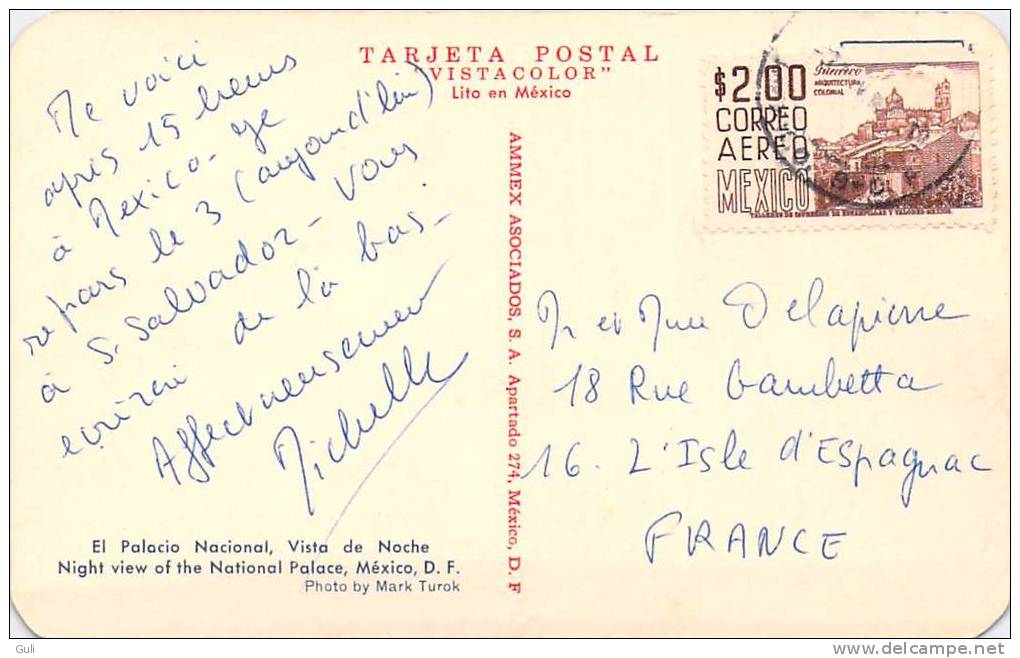 TARJETA POSTAL
"VISTACOLOR"
Lito en México
Me voici
après 15 heures
à Mexico - je
repars le 3 (aujourd'hui)
à S. Salvador - vous
écrirai de là bas -
Affectueusement
Michelle
El Palacio Nacional, Vista de Noche
Night view of the National Palace, México, D. F.
Photo by Mark Turok
AMMEX ASOCIADOS, S. A. Apartado 274, México, D. F
$2.00
CORREO
AEREO
MEXICO
Guerrero
ARQUITECTURA
COLONIAL
TALLERES DE IMPRESION DE ESTAMPILLAS Y VALORES-MEXICO
M et Mme Delapierre
18 Rue Gambetta
16. L'Isle d'Espagnac
FRANCE
Guli
www.delcampe.net